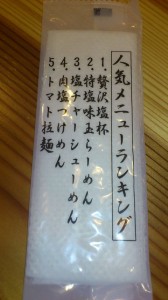 人気メニューランキング
1．贅沢塩杯
2．特塩味玉らーめん
3．塩チャーシューめん
4．肉塩つけめん
5．トマト拉麺